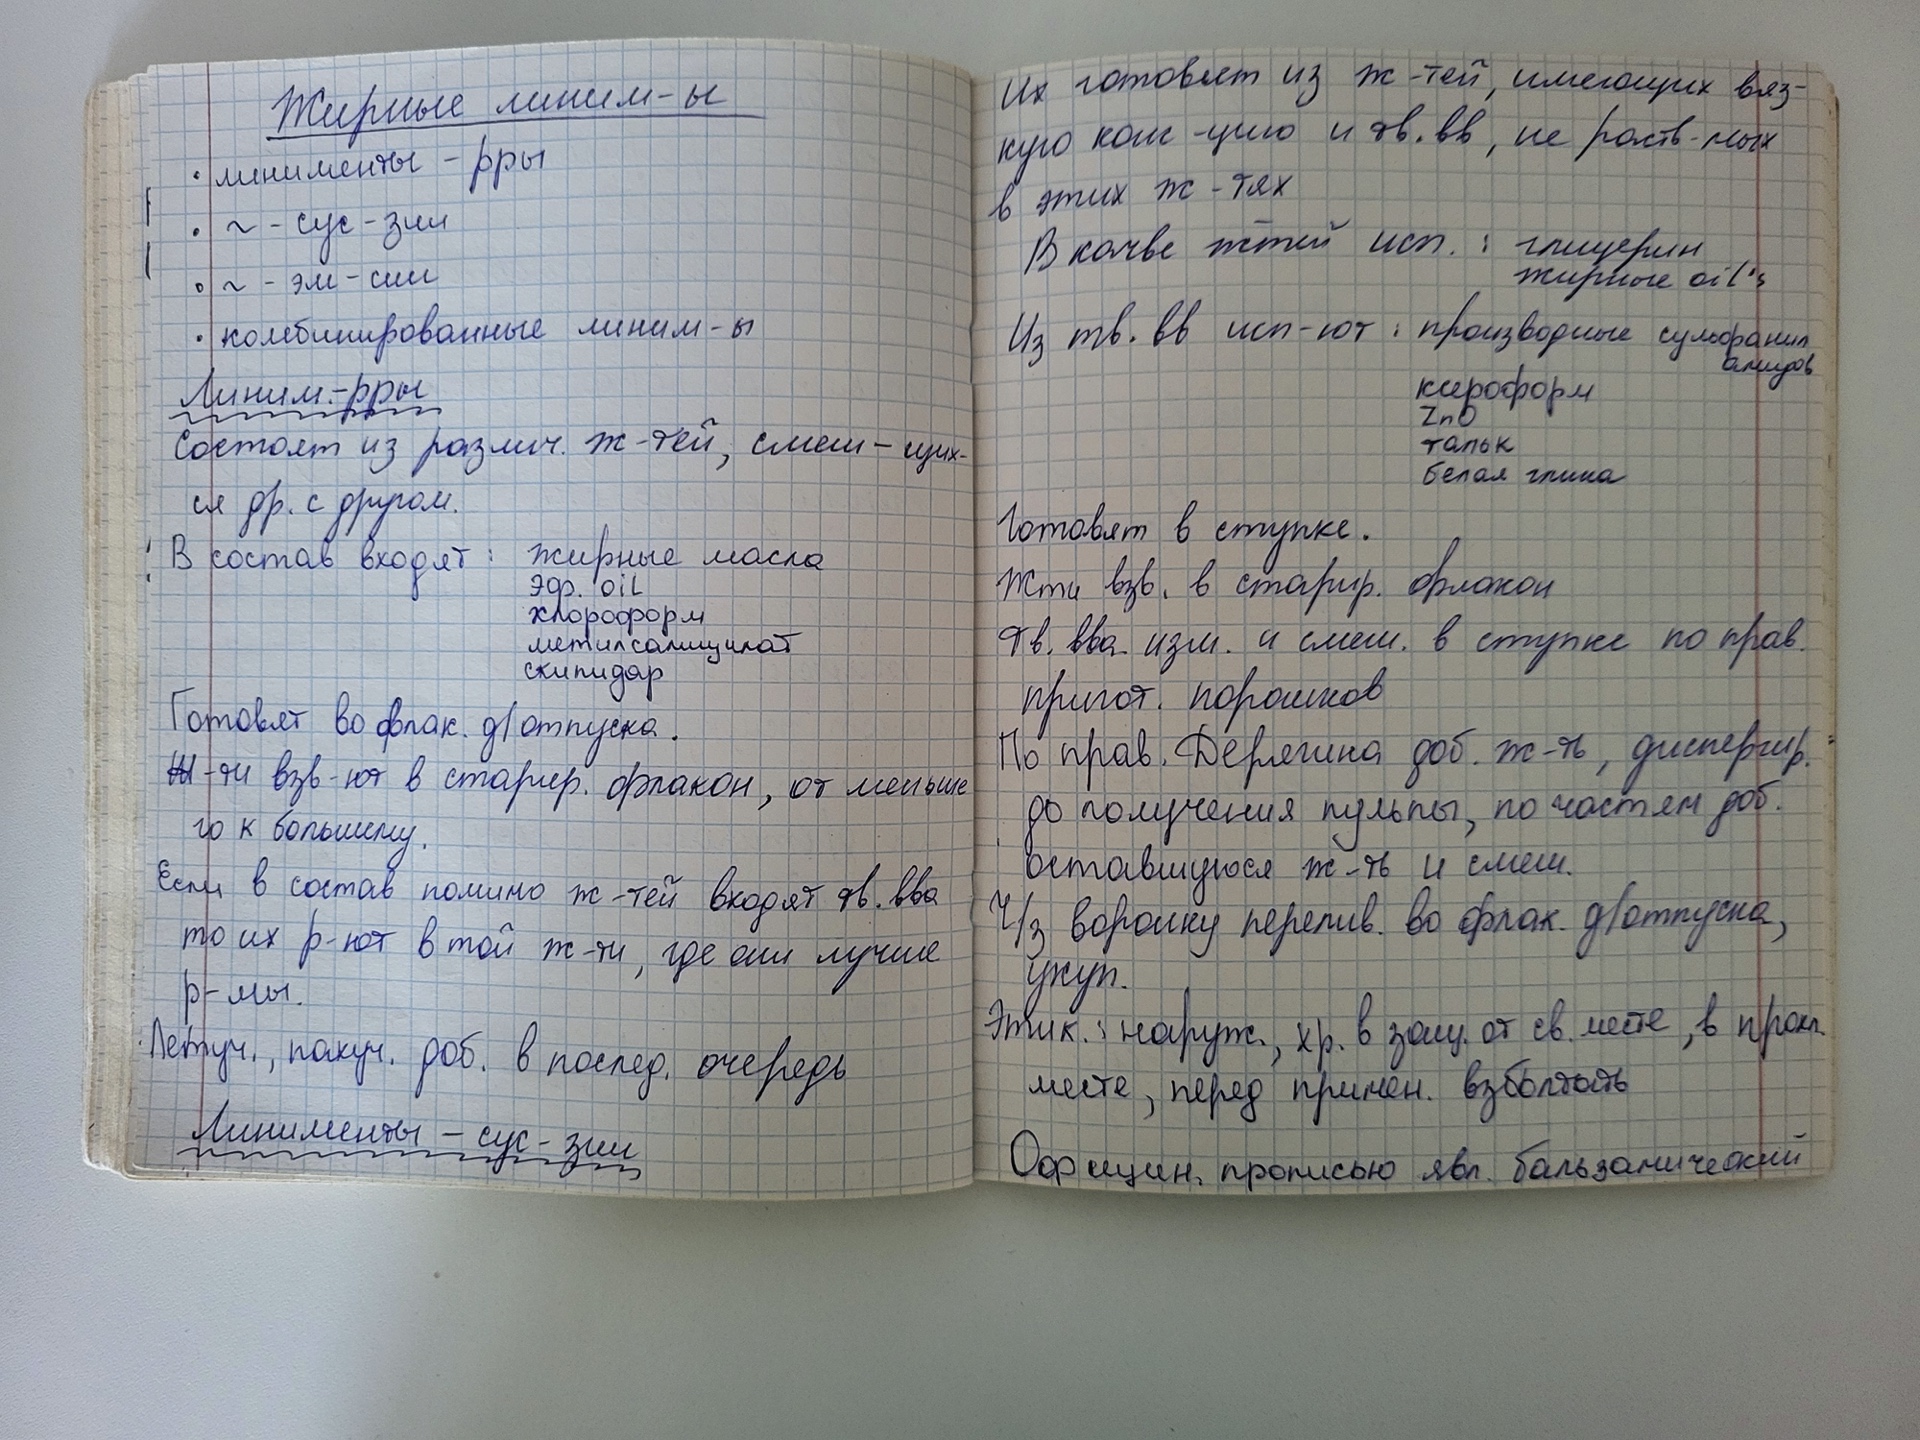 Жирные линим-ы
• линименты - рры
• ~ - сус-зии
• ~ - эм-сии
• комбинированные линим-ы
Линим.-рры
Состоят из различ. ж-тей, смеш-щих-
ся др. с другом.
В состав входят: жирные масла
эф. oil
хлороформ
метилсалицилат
скипидар
Готовят во флак. д/отпуска.
ж-ти взв-ют в старир. флакон, от меньше
го к большему.
Если в состав помимо ж-тей входят тв. вва
то их р-ют в той ж-ти, где они лучше
р-мы.
Летуч., пахуч. доб. в послед. очередь
Линименты - сус-зии
Их готовят из ж-тей, имеющих вяз-
кую конс-цию и тв. вв, не раств-мых
в этих ж-тях
В качве жтей исп.: глицерин
жирные oil's
Из тв. вв исп-ют: производные сульфанил
амидов
ксероформ
ZnO
тальк
белая глина
Готовят в ступке.
Жти взв. в старир. флакон
Тв. вва изм. и смеш. в ступке по прав.
пригот. порошков
По прав. Дерягина доб. ж-ть, диспергир.
до получения пульпы, по частям доб.
оставшуюся ж-ть и смеш.
Ч/з воронку перелив. во флак. д/отпуска,
укуп.
Этик.: наруж., хр. в защ. от св. месте, в прохл.
месте, перед примен. взболтать
Официн. прописью явл. бальзамический